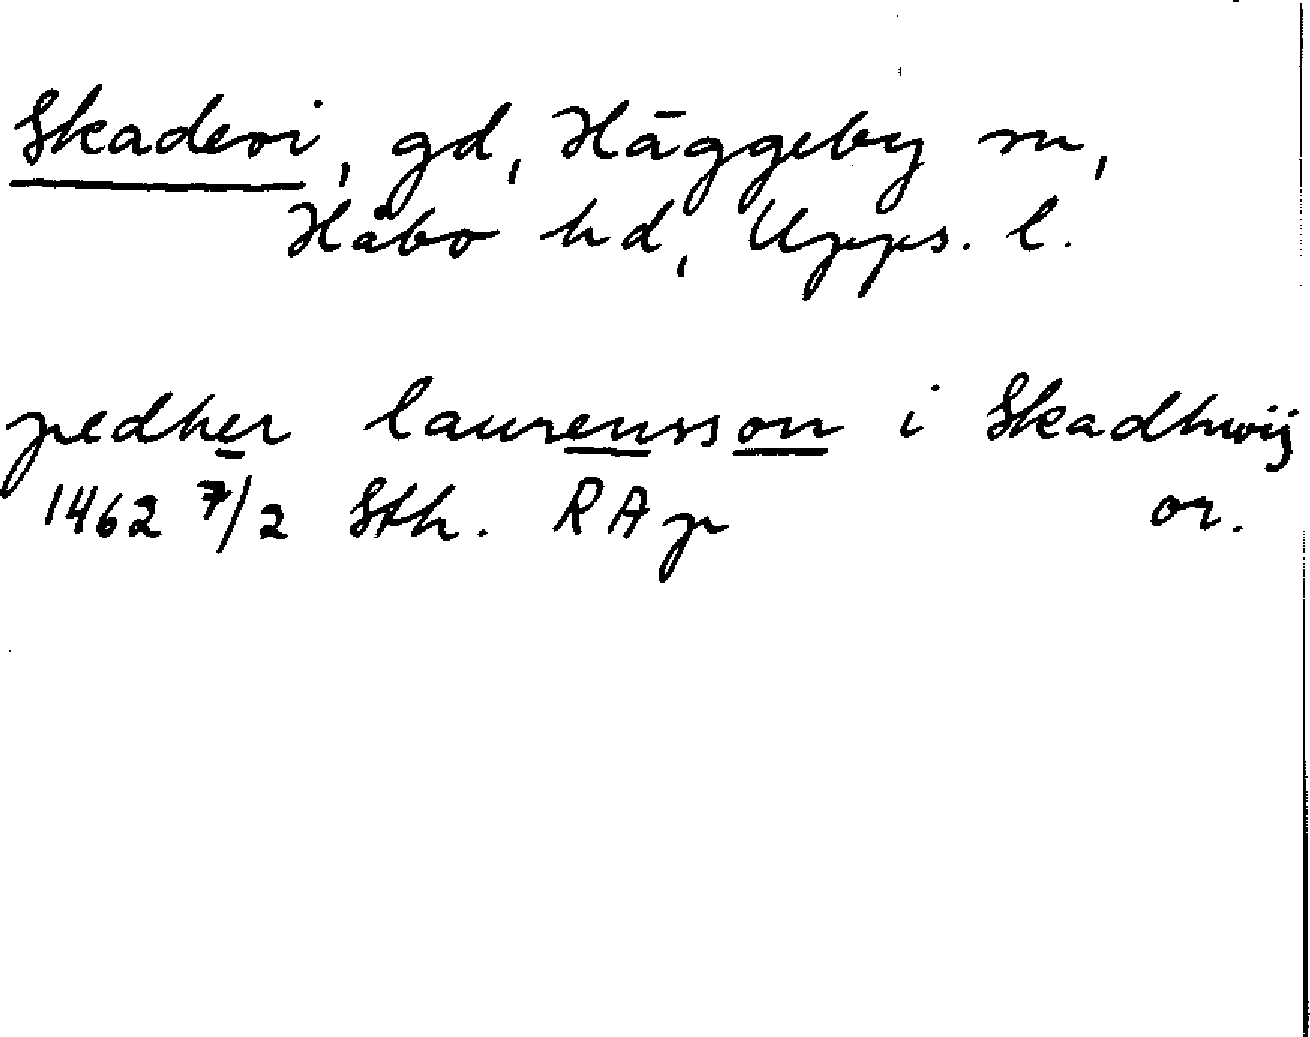 Skadevi, gd, Häggeby sn,
Håbo hd, Upps. l.
pedher laurensson i Skadhwij
1462 7/2 Sth. RAp or.